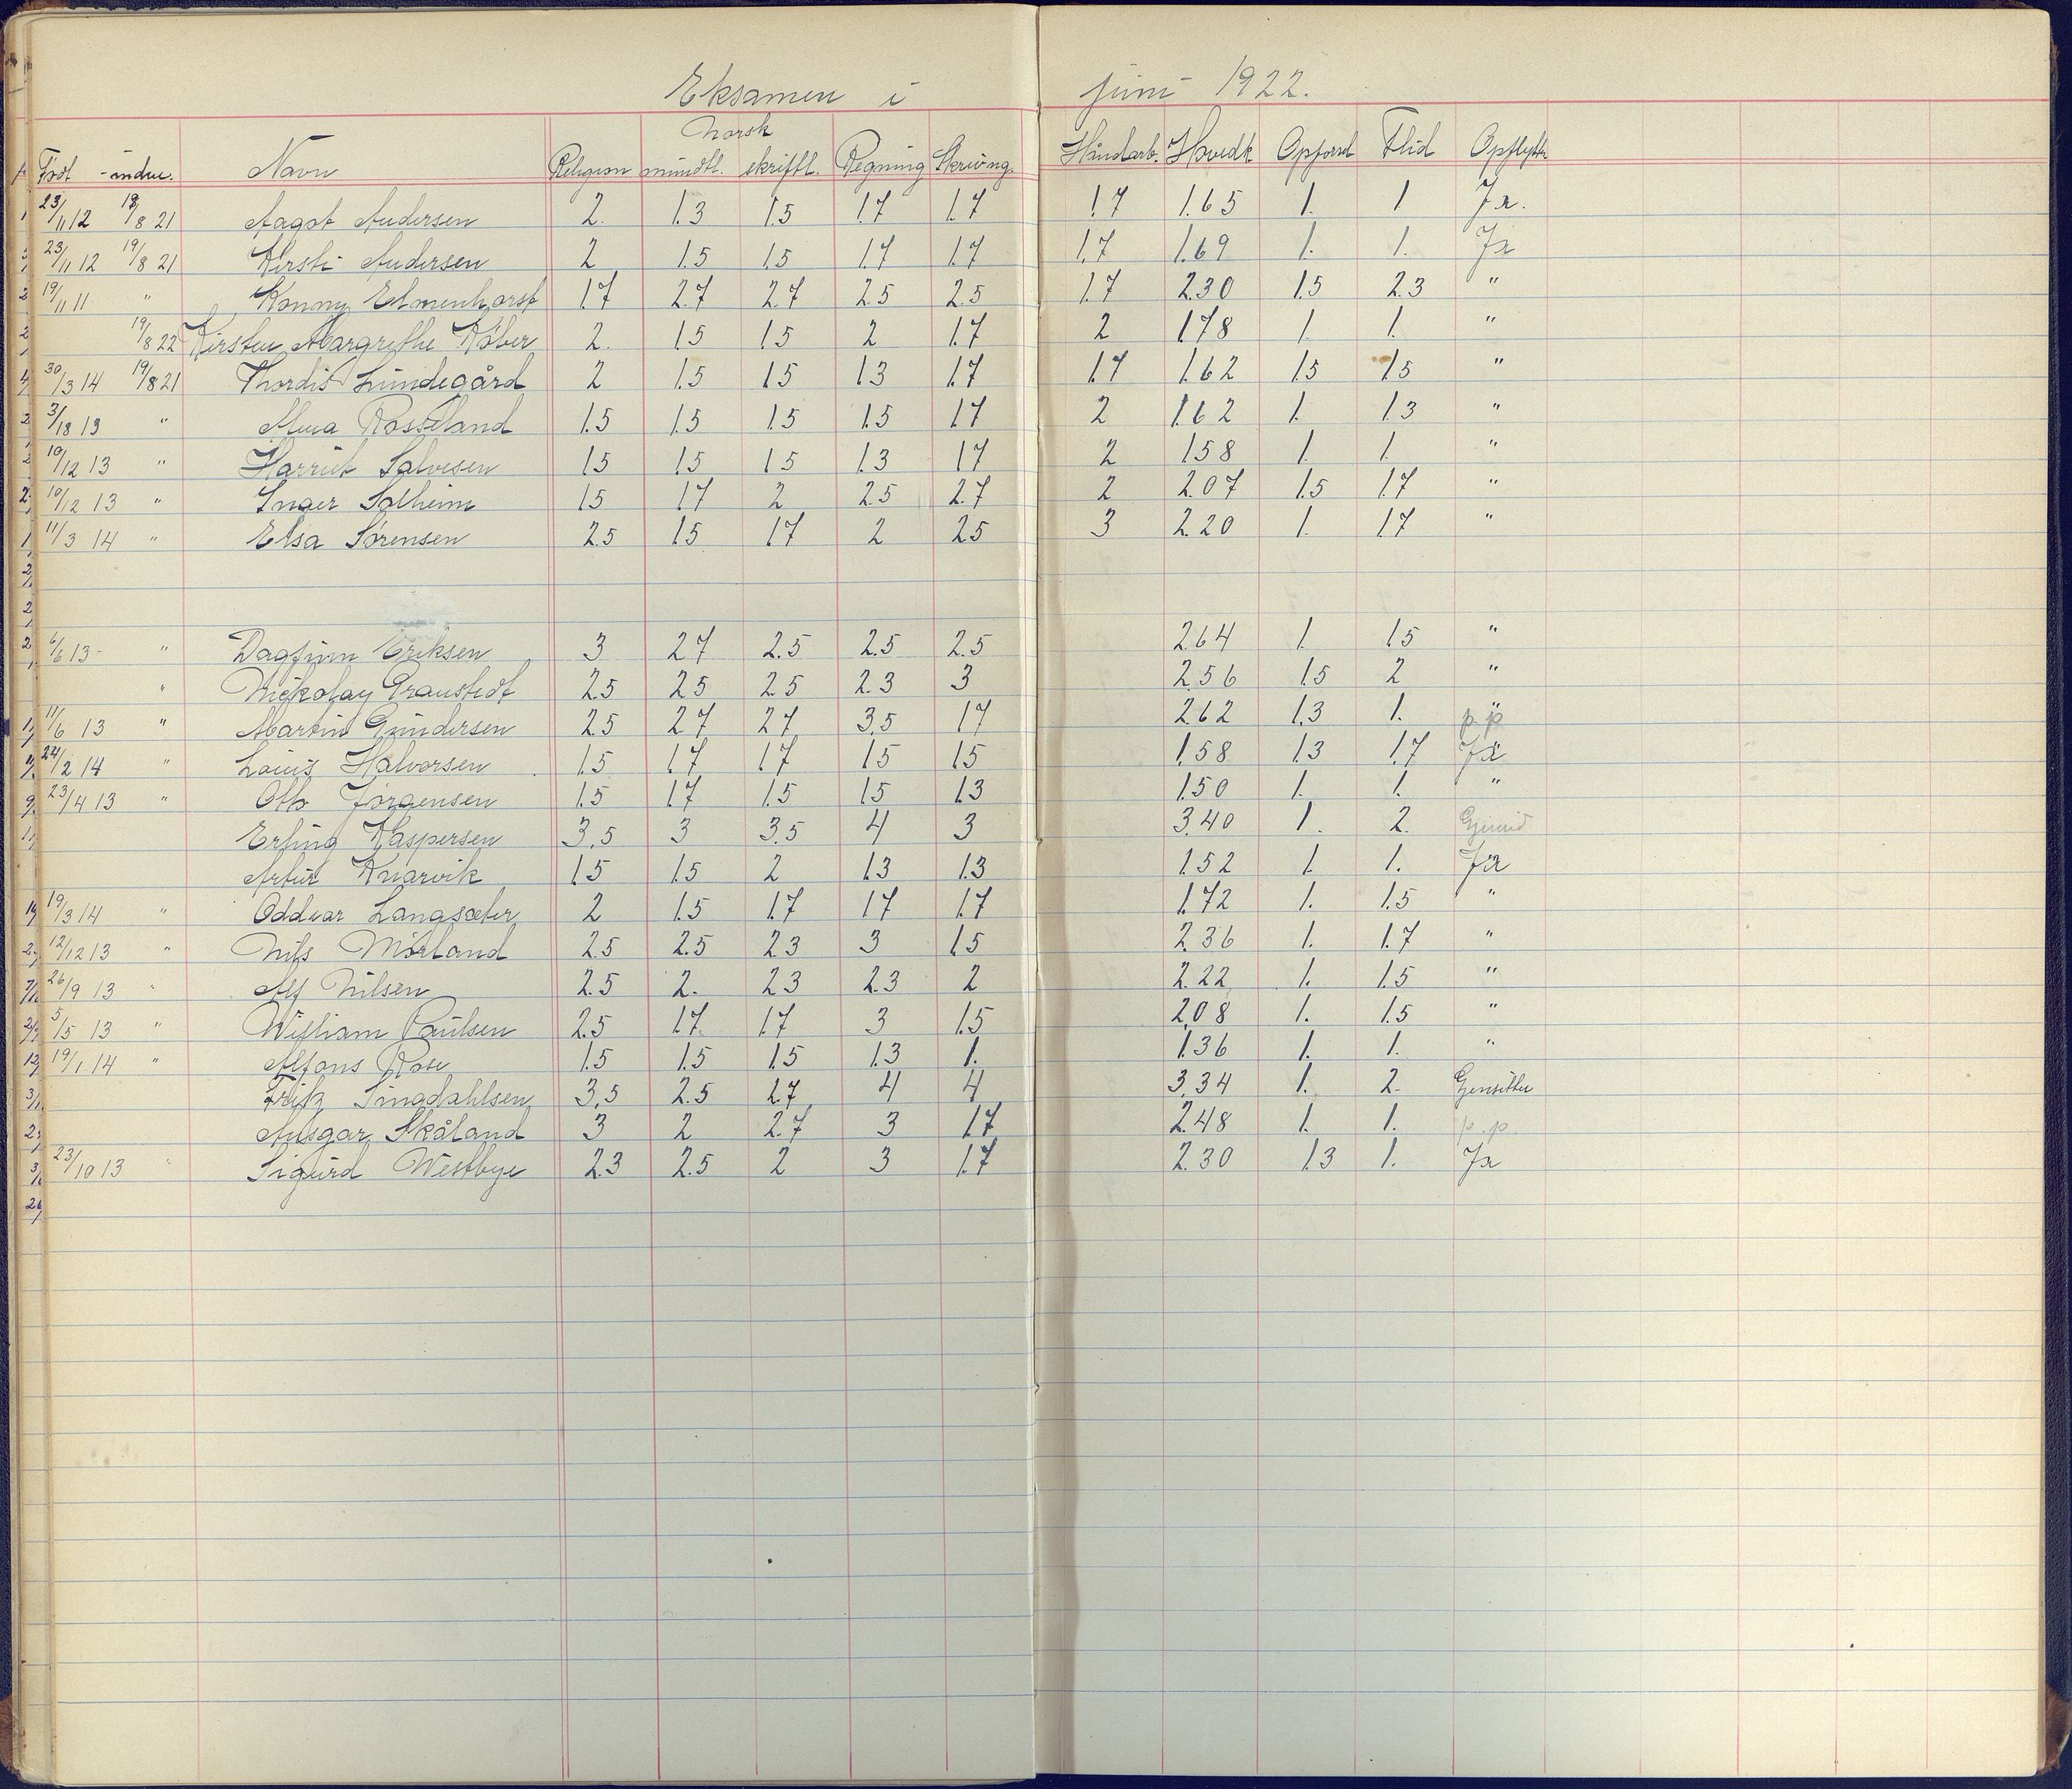 Eksamen i juni 1922.
Norsk
Født - indm. Navn Religion mundtl. skriftl. Regning Skrivng. Håndarb. Hovedk Opførsel Flid Opflytt.
23/11 12 19/8 21 Aagot Andersen 2. 1.3 1.5 1.7 1.7 1.7 1.65 1. 1 Ja.
23/11 12 19/8 21 Kirsti Andersen 2 1.5 1.5 1.7 1.7 1.7 1.69 1. 1. Ja
19/11 11 " Konny Elmenhorst 1.7 2.7 2.7 2.5 2.5 1.7 2.30 1.5 2.3 "
19/8 22 Kirsten Margrethe Kåber 2. 1.5 1.5 2 1.7 2 1.78 1. 1. "
30/3 14 19/8 21 Thordis Lundegård 2 1.5 1.5 1.3 1.7 1.7 1.62 1.5 1.5 "
3/18 13 " Alma Rosseland 1.5 1.5 1.5 1.5 1.7 2 1.62 1. 1.3 "
10/12 13 " Harriet Salvesen 1.5 1.5 1.5 1.3 1.7 2 1.58 1. 1. "
10/12 13 " Inger Solheim 1.5 1.7 2 2.5 2.7 2 2.07 1.5 1.7 "
11/3 14 " Elsa Sørensen 2.5 1.5 1.7 2 2.5 3 2.20 1. 1.7 "
6/6 13 - " Dagfinn Eriksen 3 2.7 2.5 2.5 2.5 2.64 1. 1.5 "
" Nickolay Granstedt 2.5 2.5 2.5 2.3 3 2.56 1.5 2 "
11/6 13 " Martin Gundersen 2.5 2.7 2.7 3.5 1.7 2.62 1.3 1. " p.p
24/2 14 " Louis Halvorsen 1.5 1.7 1.7 1.5 1.5 1.58 1.3 1.7 Ja
23/4 13 " Otto Jørgensen 1.5 1.7 1.5 1.5 1.3 1.50 1. 1. "
Erling Kaspersen 3.5 3 3.5 4 3 3.40 1. 2.
Artur Knarvik 1.5 1.5 2 1.3 1.3 1.52 1. 1. Ja
19/3 14 " Oddvar Langsæter 2 1.5 1.7 1.7 1.7 1.72 1. 1.5 "
12/12 13 " Nils Mørland 2.5 2.5 2.3 3 1.5 2.36 1. 1.7 "
26/9 13 " Alf Nilsen 2.5 2. 2.3 2.3 2 2.22 1. 1.5 "
5/5 13 " William Paulsen 2.5 1.7 1.7 3 1.5 2.08 1. 1.5 "
19/1 14 " Alfons Rose 1.5 1.5 1.5 1.3 1. 1.36 1. 1. "
Fritz Singdahlsen 3.5 2.5 2.7 4 4 3.34 1. 2. Gensitter
Ansgar Skåland 3 2 2.7 3 1.7 2.48 1. 1. p.p.
23/10 13 " Sigurd Westbye 2.3 2.5 2 3 1.7 2.30 1.3 1. Ja